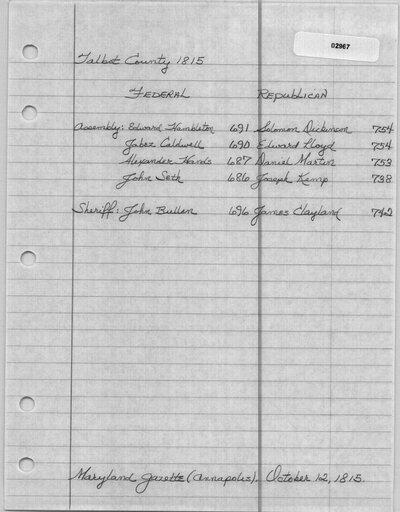 02967
Talbot County 1815
FEDERAL REPUBLICAN
Assembly: Edward Hambleton 691 Solomon Dickinson 754
Jabez Caldwell 690 Edward Lloyd 754
Alexander Hands 687 Daniel Martin 753
John Seth 686 Joseph Kemp 738
Sheriff: John Bullen 696 James Clayland 742
Maryland Gazette (Annapolis). October 12, 1815.